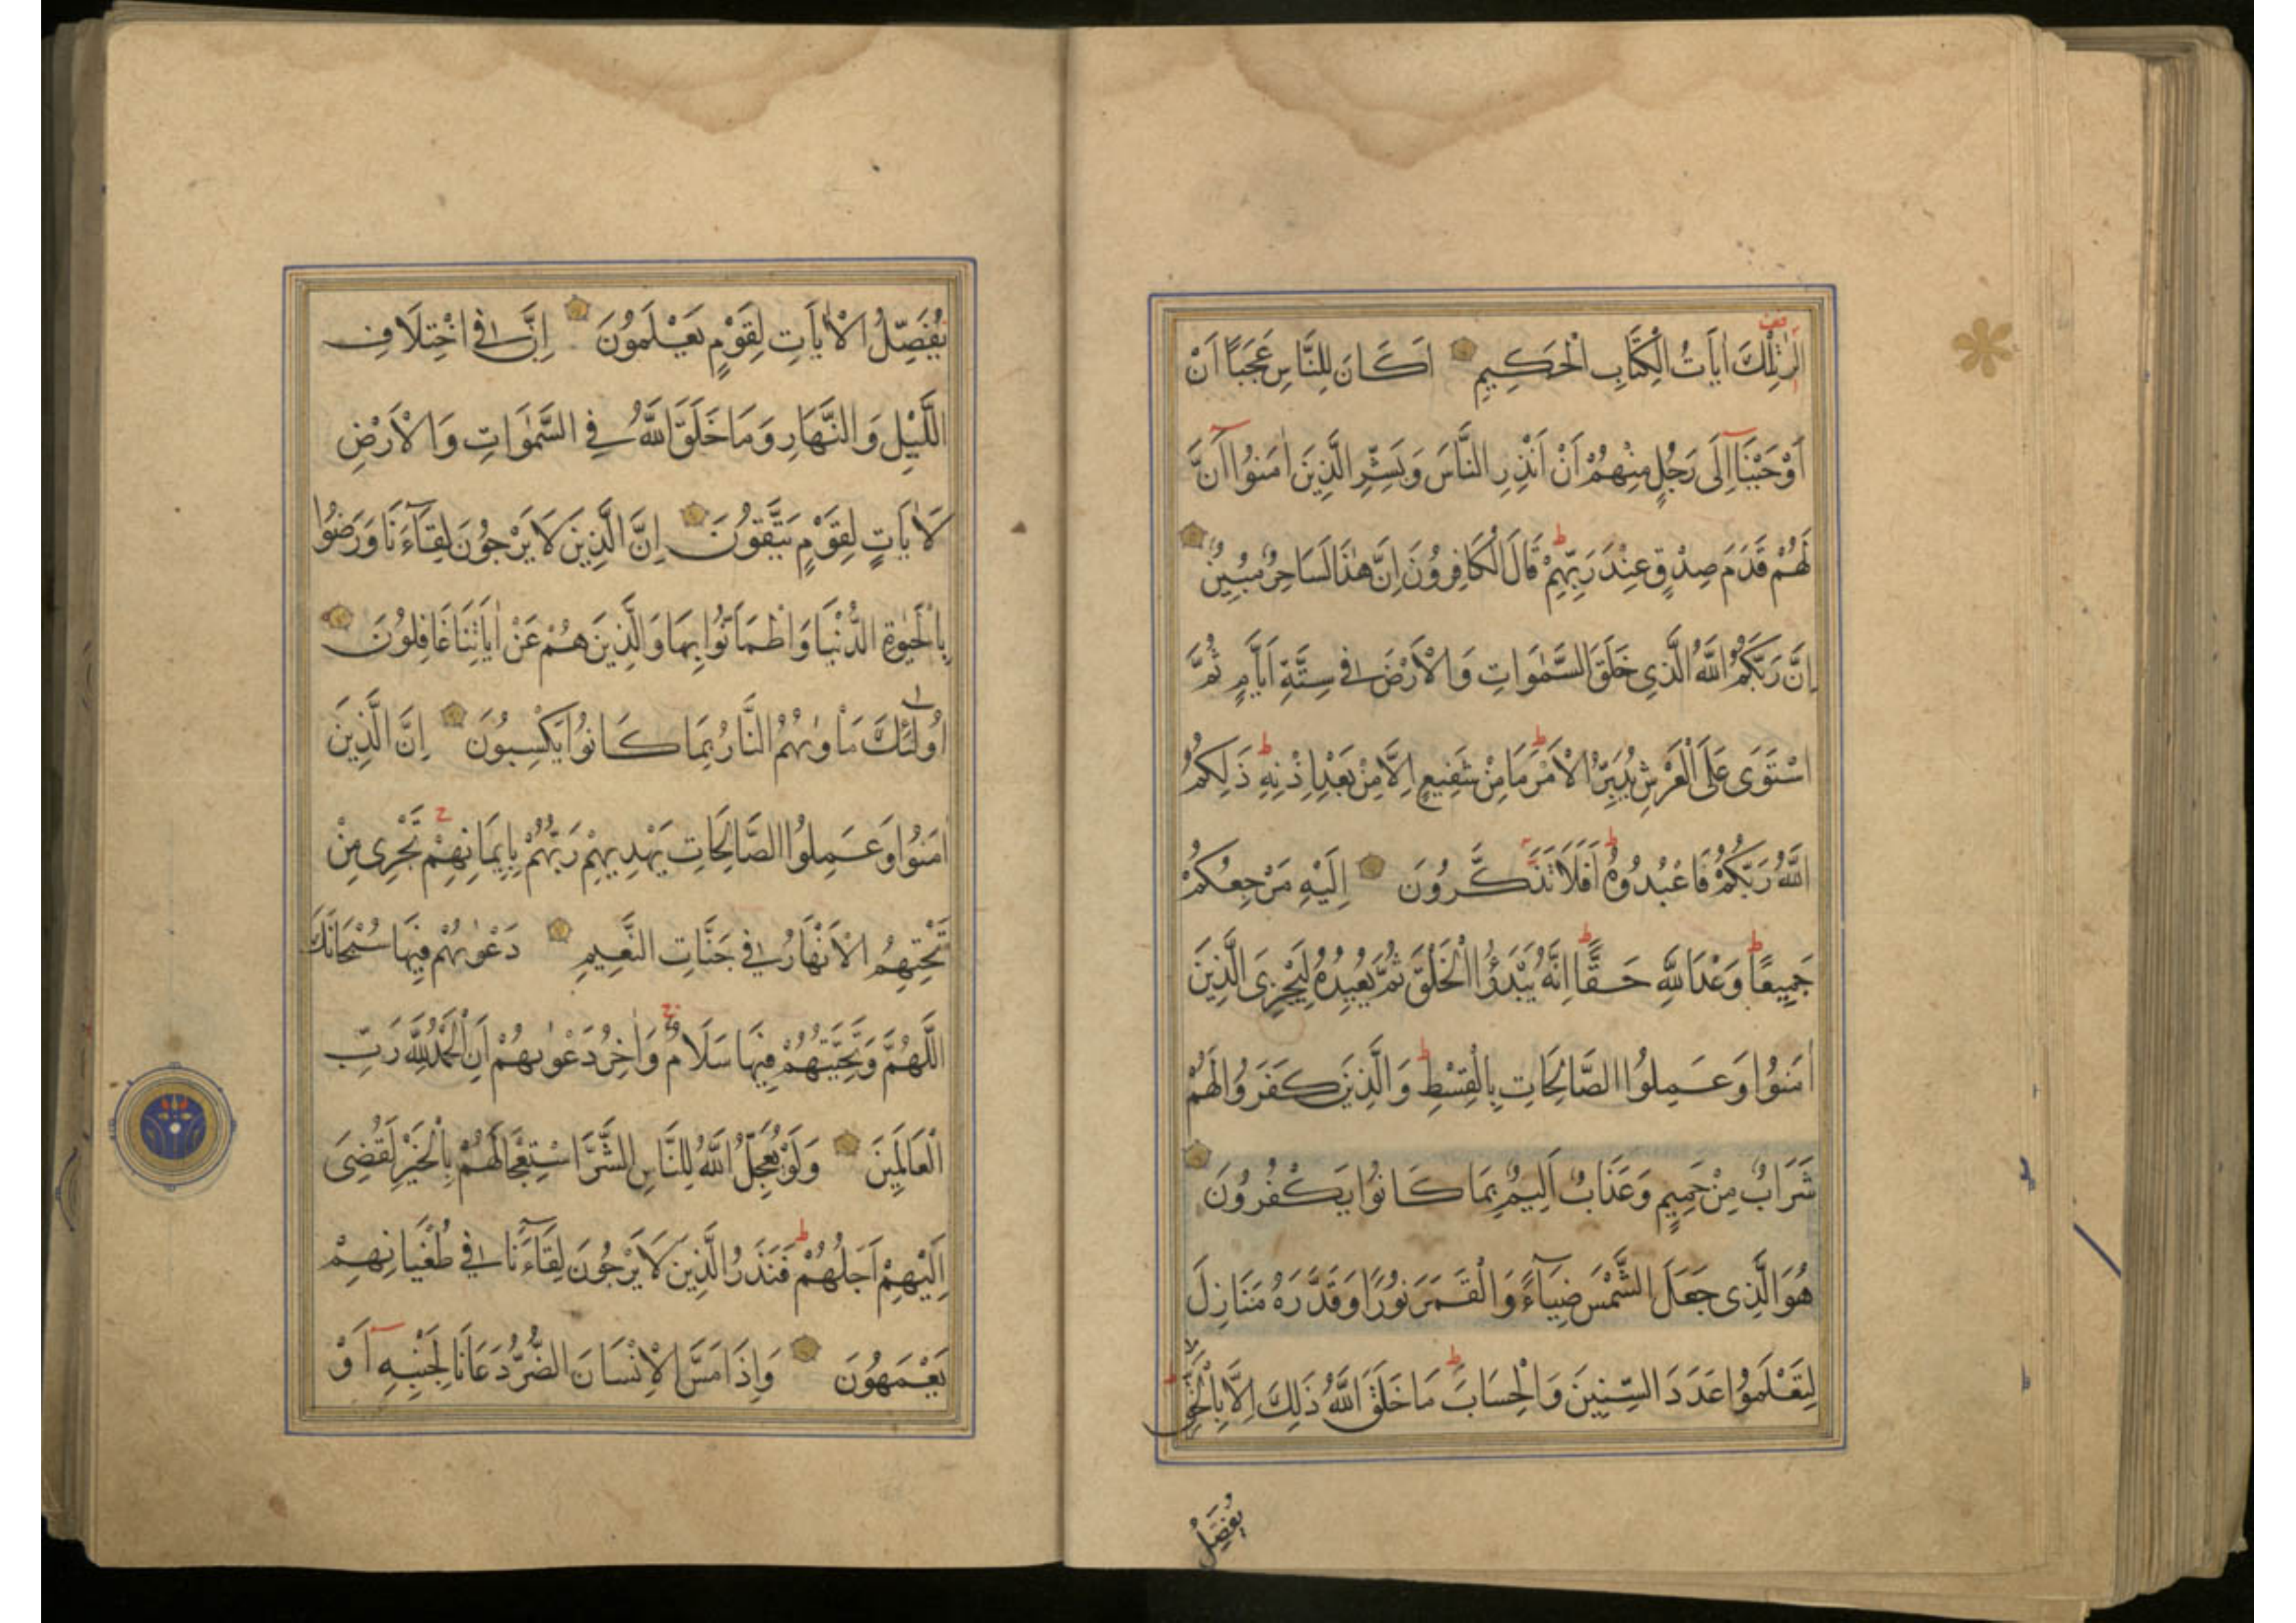 الٓرٰ تِلْكَ اٰيَاتُ الْكِتَابِ الْحَكِيمِ اَكَانَ لِلنَّاسِ عَجَبًا اَنْ
اَوْحَيْنَآ اِلَى رَجُلٍ مِنْهُمْ اَنْ اَنْذِرِ النَّاسَ وَبَشِّرِ الَّذِينَ اٰمَنُوٓا اَنَّ
لَهُمْ قَدَمَ صِدْقٍ عِنْدَ رَبِّهِمْ ط قَالَ الْكَافِرُونَ اِنَّ هٰذَا لَسَاحِرٌ مُبِينٌ
اِنَّ رَبَّكُمُ اللّٰهُ الَّذِي خَلَقَ السَّمٰوَاتِ وَالْاَرْضَ فِي سِتَّةِ اَيَّامٍ ثُمَّ
اسْتَوَى عَلَى الْعَرْشِ يُدَبِّرُ الْاَمْرَ ط مَا مِنْ شَفِيعٍ اِلَّا مِنْ بَعْدِ اِذْنِهِ ط ذَلِكُمُ
اللّٰهُ رَبُّكُمْ فَاعْبُدُوهُ ط اَفَلَا تَذَكَّرُونَ اِلَيْهِ مَرْجِعُكُمْ
جَمِيعًا ط وَعْدَ اللّٰهِ حَقًّا ط اِنَّهُ يَبْدَؤُا الْخَلْقَ ثُمَّ يُعِيدُهُ لِيَجْزِيَ الَّذِينَ
اٰمَنُوا وَعَمِلُوا الصَّالِحَاتِ بِالْقِسْطِ ط وَالَّذِينَ كَفَرُوا لَهُمْ
شَرَابٌ مِنْ حَمِيمٍ وَعَذَابٌ اَلِيمٌ بِمَا كَانُوا يَكْفُرُونَ
هُوَ الَّذِي جَعَلَ الشَّمْسَ ضِيَآءً وَالْقَمَرَ نُورًا وَقَدَّرَهُ مَنَازِلَ
لِتَعْلَمُوا عَدَدَ السِّنِينَ وَالْحِسَابَ ط مَا خَلَقَ اللّٰهُ ذَلِكَ اِلَّا بِالْحَقِّ
يُفَصِّلُ
يُفَصِّلُ الْاٰيَاتِ لِقَوْمٍ يَعْلَمُونَ اِنَّ فِي اخْتِلَافِ
اللَّيْلِ وَالنَّهَارِ وَمَا خَلَقَ اللّٰهُ فِي السَّمٰوَاتِ وَالْاَرْضِ
لَاٰيَاتٍ لِقَوْمٍ يَتَّقُونَ اِنَّ الَّذِينَ لَا يَرْجُونَ لِقَآءَنَا وَرَضُوا
بِالْحَيٰوةِ الدُّنْيَا وَاطْمَاَنُّوا بِهَا وَالَّذِينَ هُمْ عَنْ اٰيَاتِنَا غَافِلُونَ
اُولٰٓئِكَ مَاْوٰيهُمُ النَّارُ بِمَا كَانُوا يَكْسِبُونَ اِنَّ الَّذِينَ
اٰمَنُوا وَعَمِلُوا الصَّالِحَاتِ يَهْدِيهِمْ رَبُّهُمْ بِاِيمَانِهِمْ ج تَجْرِي مِنْ
تَحْتِهِمُ الْاَنْهَارُ فِي جَنَّاتِ النَّعِيمِ دَعْوٰيهُمْ فِيهَا سُبْحَانَكَ
اللّٰهُمَّ وَتَحِيَّتُهُمْ فِيهَا سَلَامٌ ج وَاٰخِرُ دَعْوٰيهُمْ اَنِ الْحَمْدُ لِلّٰهِ رَبِّ
الْعَالَمِينَ وَلَوْ يُعَجِّلُ اللّٰهُ لِلنَّاسِ الشَّرَّ اسْتِعْجَالَهُمْ بِالْخَيْرِ لَقُضِيَ
اِلَيْهِمْ اَجَلُهُمْ ط فَنَذَرُ الَّذِينَ لَا يَرْجُونَ لِقَآءَنَا فِي طُغْيَانِهِمْ
يَعْمَهُونَ وَاِذَا مَسَّ الْاِنْسَانَ الضُّرُّ دَعَانَا لِجَنْبِهِ اَوْ